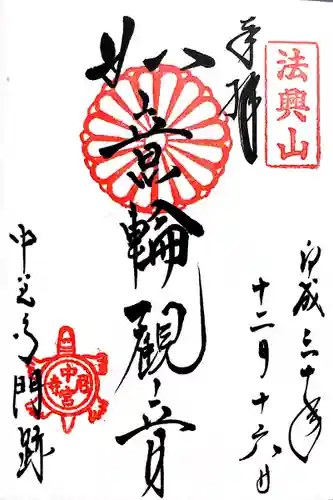 法興山
奉拝
平成三十年
十二月十六日
如意輪觀音
中宮寺門跡
中宮尼寺